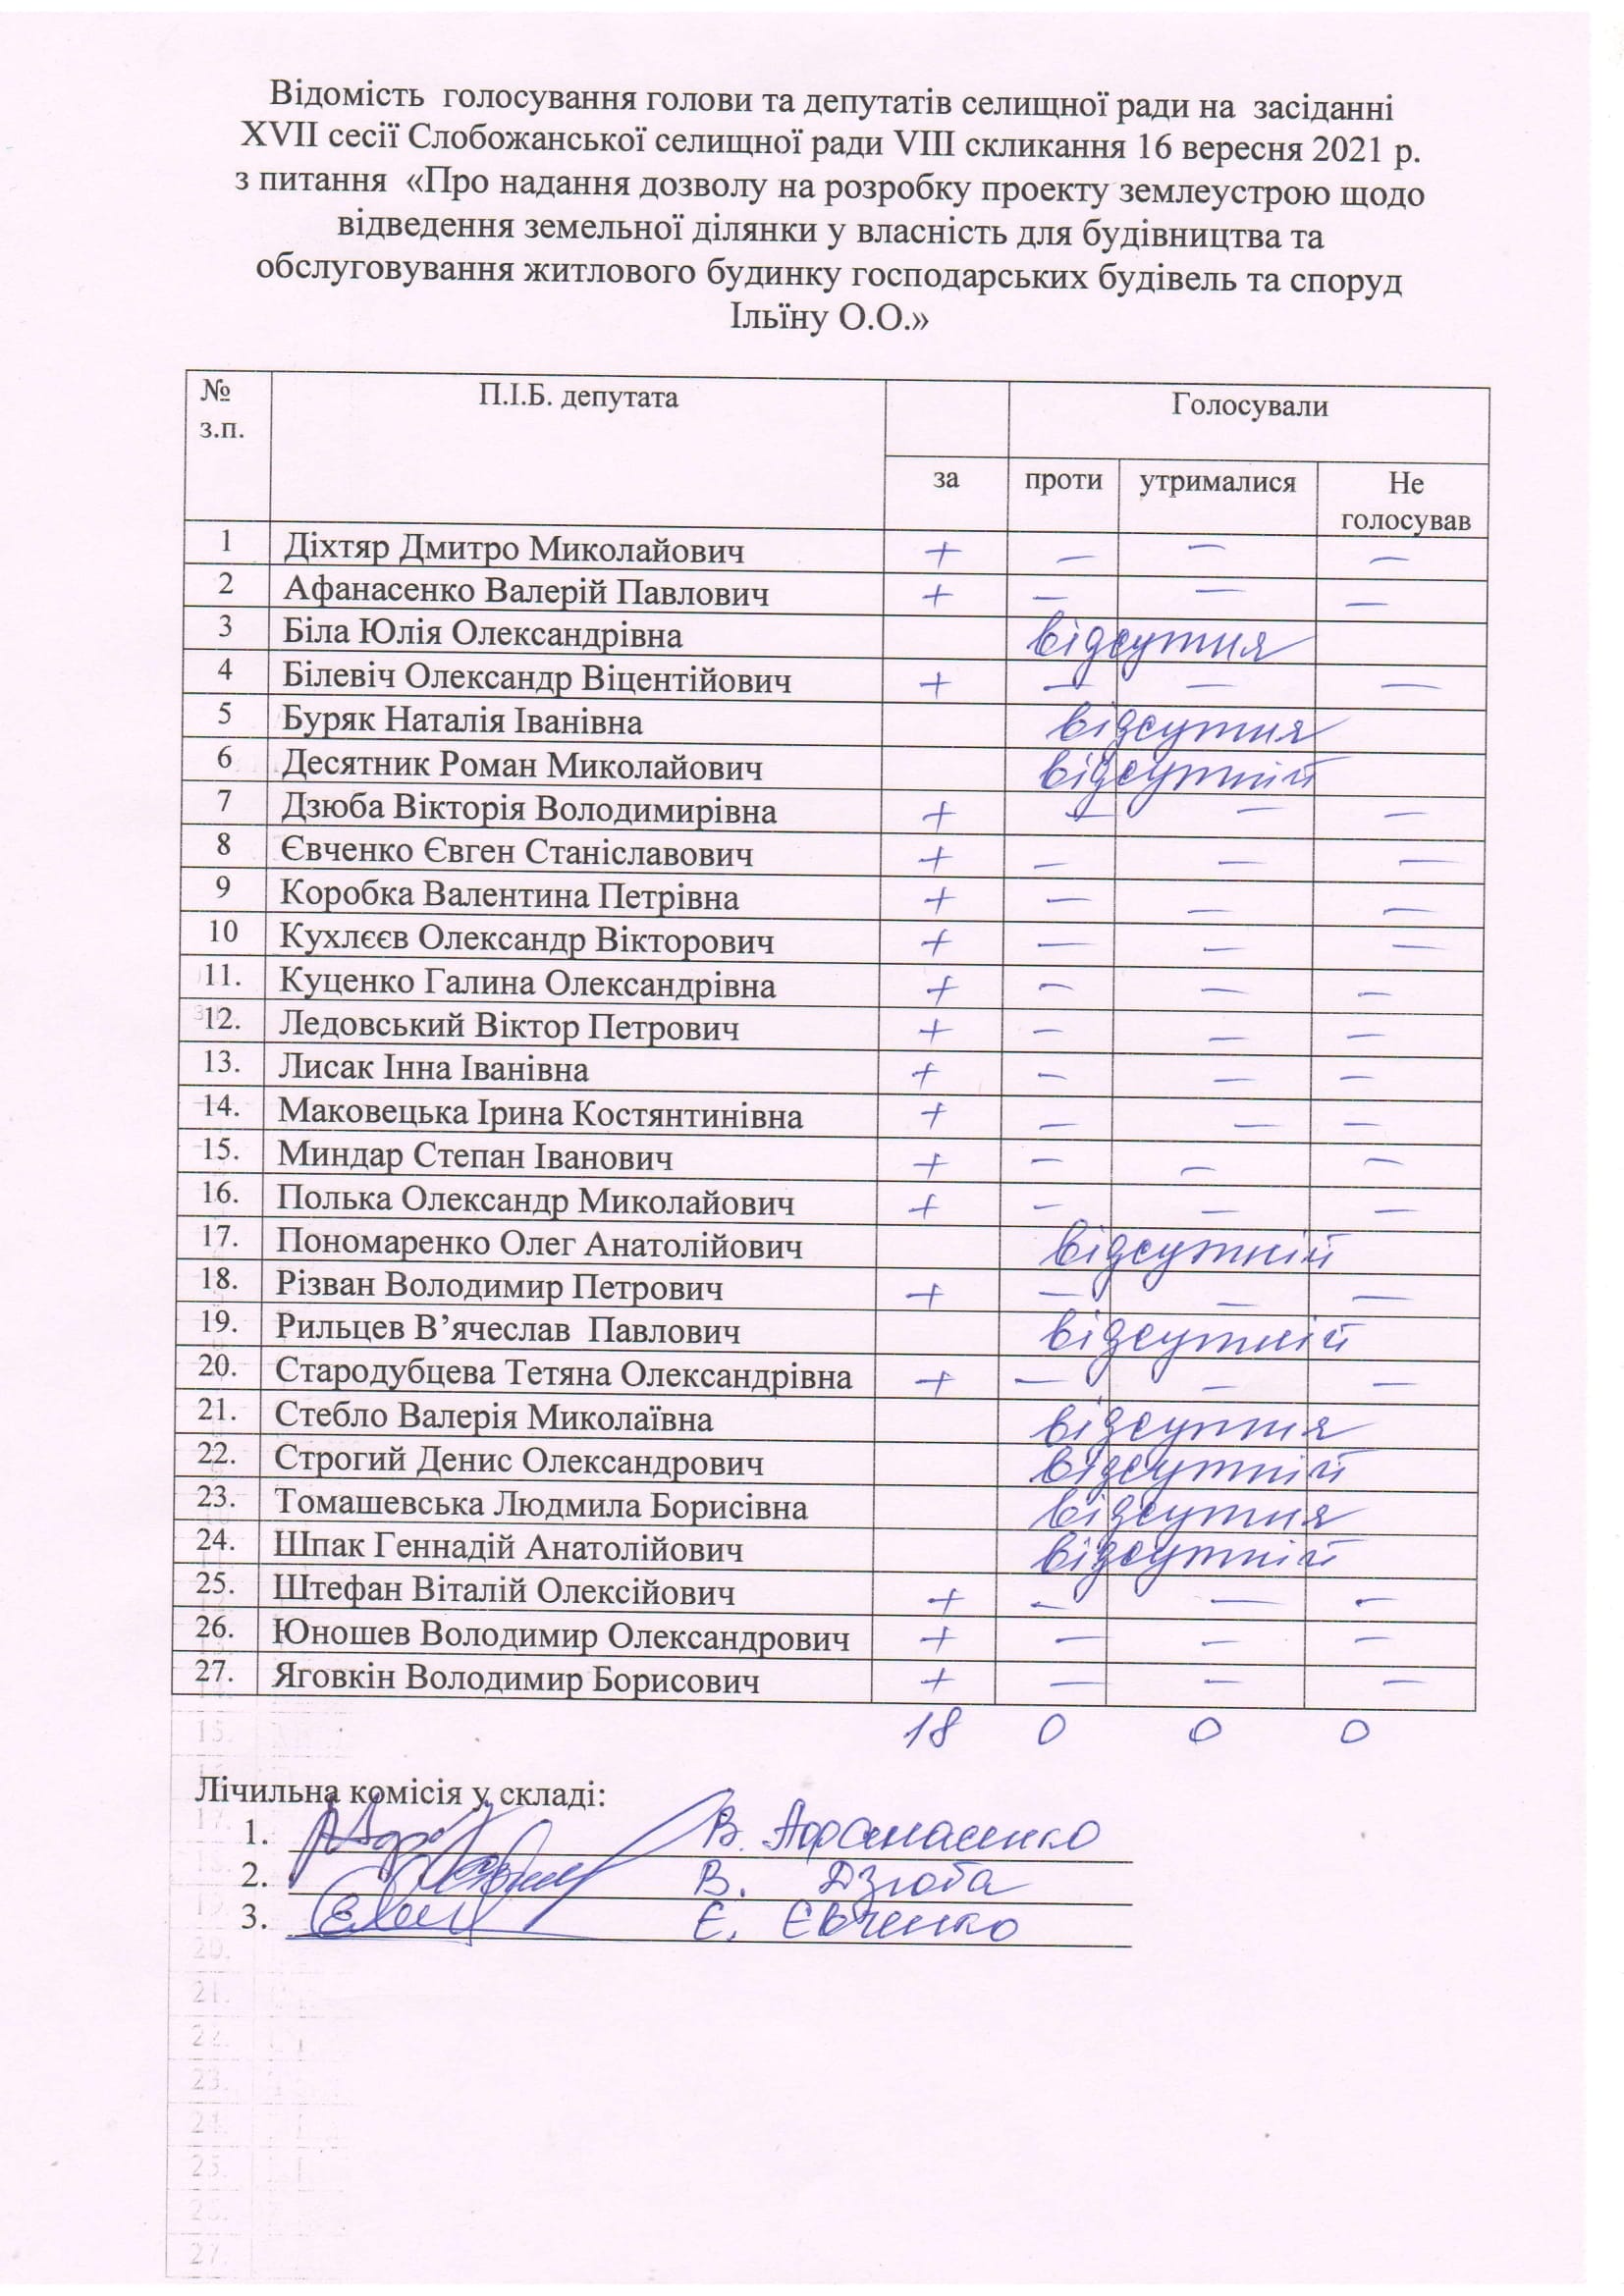 Відомість голосування голови та депутатів селищної ради на засіданні
XVII сесії Слобожанської селищної ради VIII скликання 16 вересня 2021 р.
з питання «Про надання дозволу на розробку проекту землеустрою щодо
відведення земельної ділянки у власність для будівництва та
обслуговування житлового будинку господарських будівель та споруд
Ільїну О.О.»
№ з.п. П.І.Б. депутата Голосували
за проти утрималися Не голосував
1 Діхтяр Дмитро Миколайович + — — —
2 Афанасенко Валерій Павлович + — — —
3 Біла Юлія Олександрівна відсутня
4 Білевіч Олександр Віцентійович + — — —
5 Буряк Наталія Іванівна відсутня
6 Десятник Роман Миколайович відсутній
7 Дзюба Вікторія Володимирівна + — — —
8 Євченко Євген Станіславович + — — —
9 Коробка Валентина Петрівна + — — —
10 Кухлєєв Олександр Вікторович + — — —
11. Куценко Галина Олександрівна + — — —
12. Ледовський Віктор Петрович + — — —
13. Лисак Інна Іванівна + — — —
14. Маковецька Ірина Костянтинівна + — — —
15. Миндар Степан Іванович + — — —
16. Полька Олександр Миколайович + — — —
17. Пономаренко Олег Анатолійович відсутній
18. Різван Володимир Петрович + — — —
19. Рильцев В’ячеслав Павлович відсутній
20. Стародубцева Тетяна Олександрівна + — — —
21. Стебло Валерія Миколаївна відсутня
22. Строгий Денис Олександрович відсутній
23. Томашевська Людмила Борисівна відсутня
24. Шпак Геннадій Анатолійович відсутній
25. Штефан Віталій Олексійович + — — —
26. Юношев Володимир Олександрович + — — —
27. Яговкін Володимир Борисович + — — —
18 0 0 0
Лічильна комісія у складі:
1. В. Афанасенко
2. В. Дзюба
3. Є. Євченко